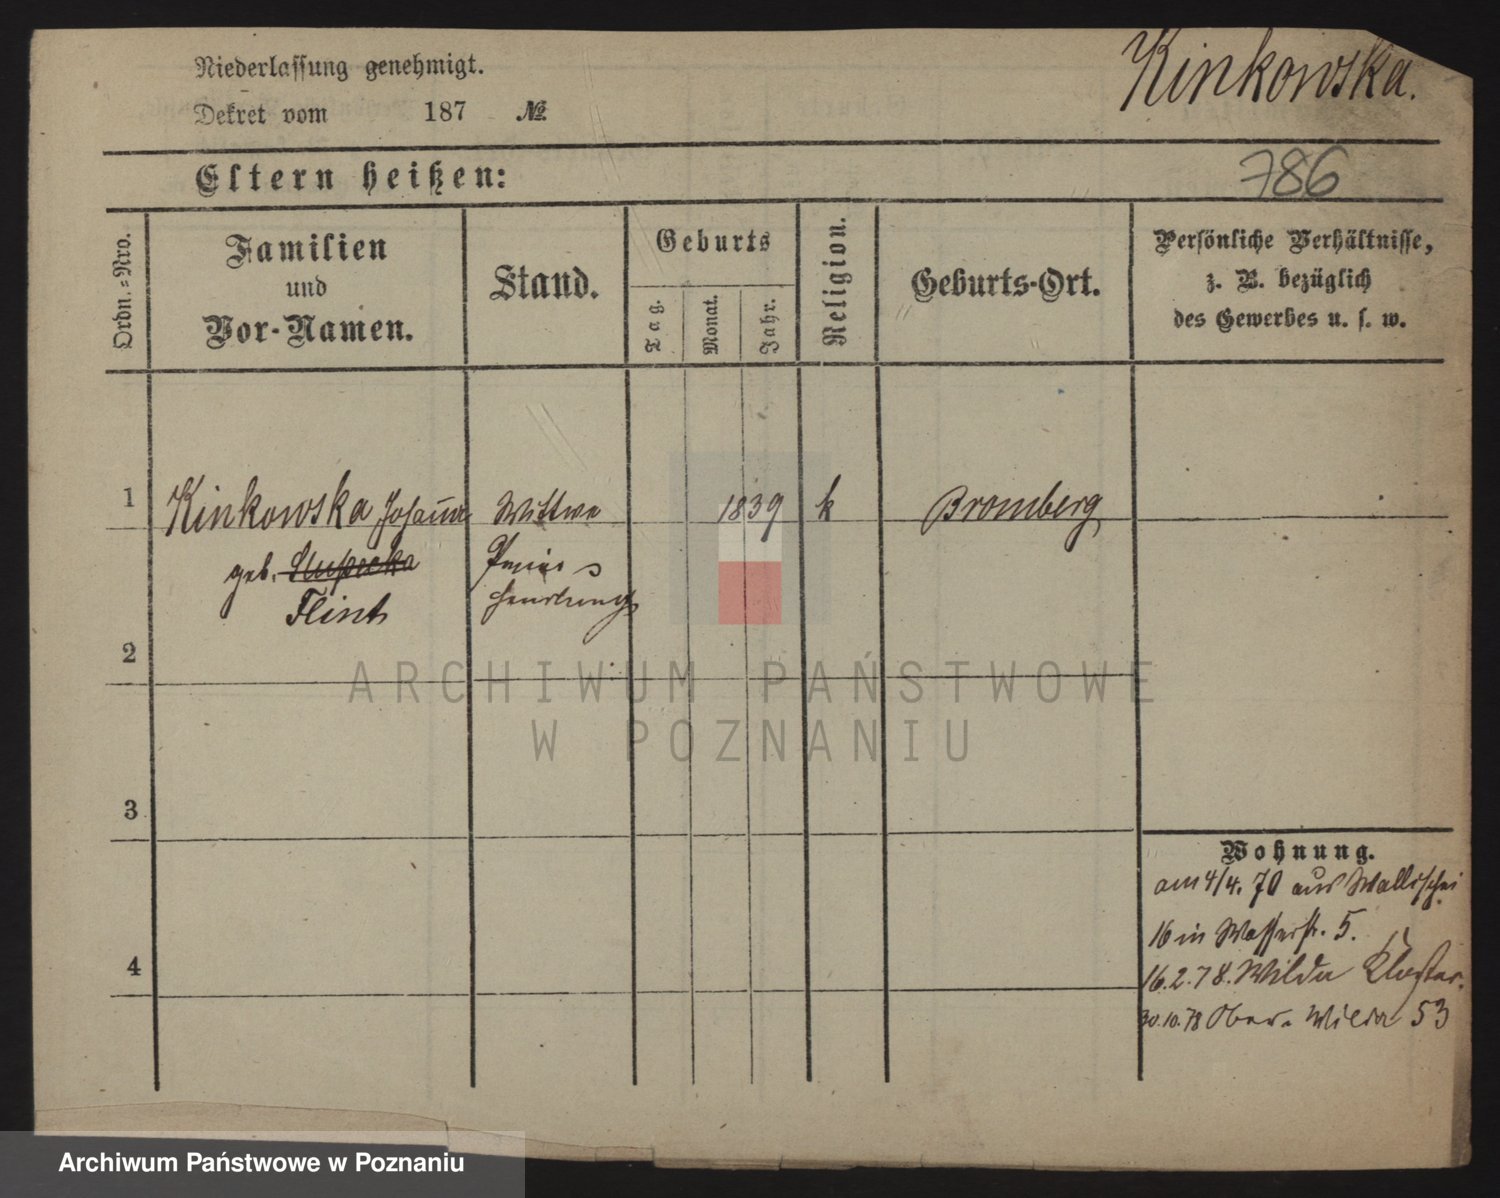 Kinkowska.
Niederlassung genehmigt.
Dekret vom 187 №
786
Eltern heißen:
Ordn.=Nro.
Familien
und
Vor-Namen.
Stand.
Geburts
Tag.
Monat.
Jahr.
Religion.
Geburts-Ort.
Persönliche Verhältnisse,
z. B. bezüglich
des Gewerbes u. s. w.
1 Kinkowska Johanna Wittwe 1839 k Bromberg
geb. Slupecka
Flint
2
3
4
Wohnung.
am 4/4. 70 aus Wallischei
16 in Wasserstr. 5.
16.2.78. Wilda Kloster.
30.10.78 Ober. Wilda 53
ARCHIWUM PAŃSTWOWE
W POZNANIU
Archiwum Państwowe w Poznaniu